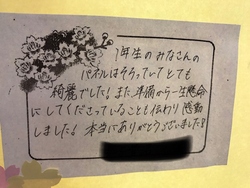 1年生のみなさんの
パネルはそろっていてとても
綺麗でした!また、準備から一生懸命
にしてくださっていることも伝わり感動
しました!本当にありがとうございました!